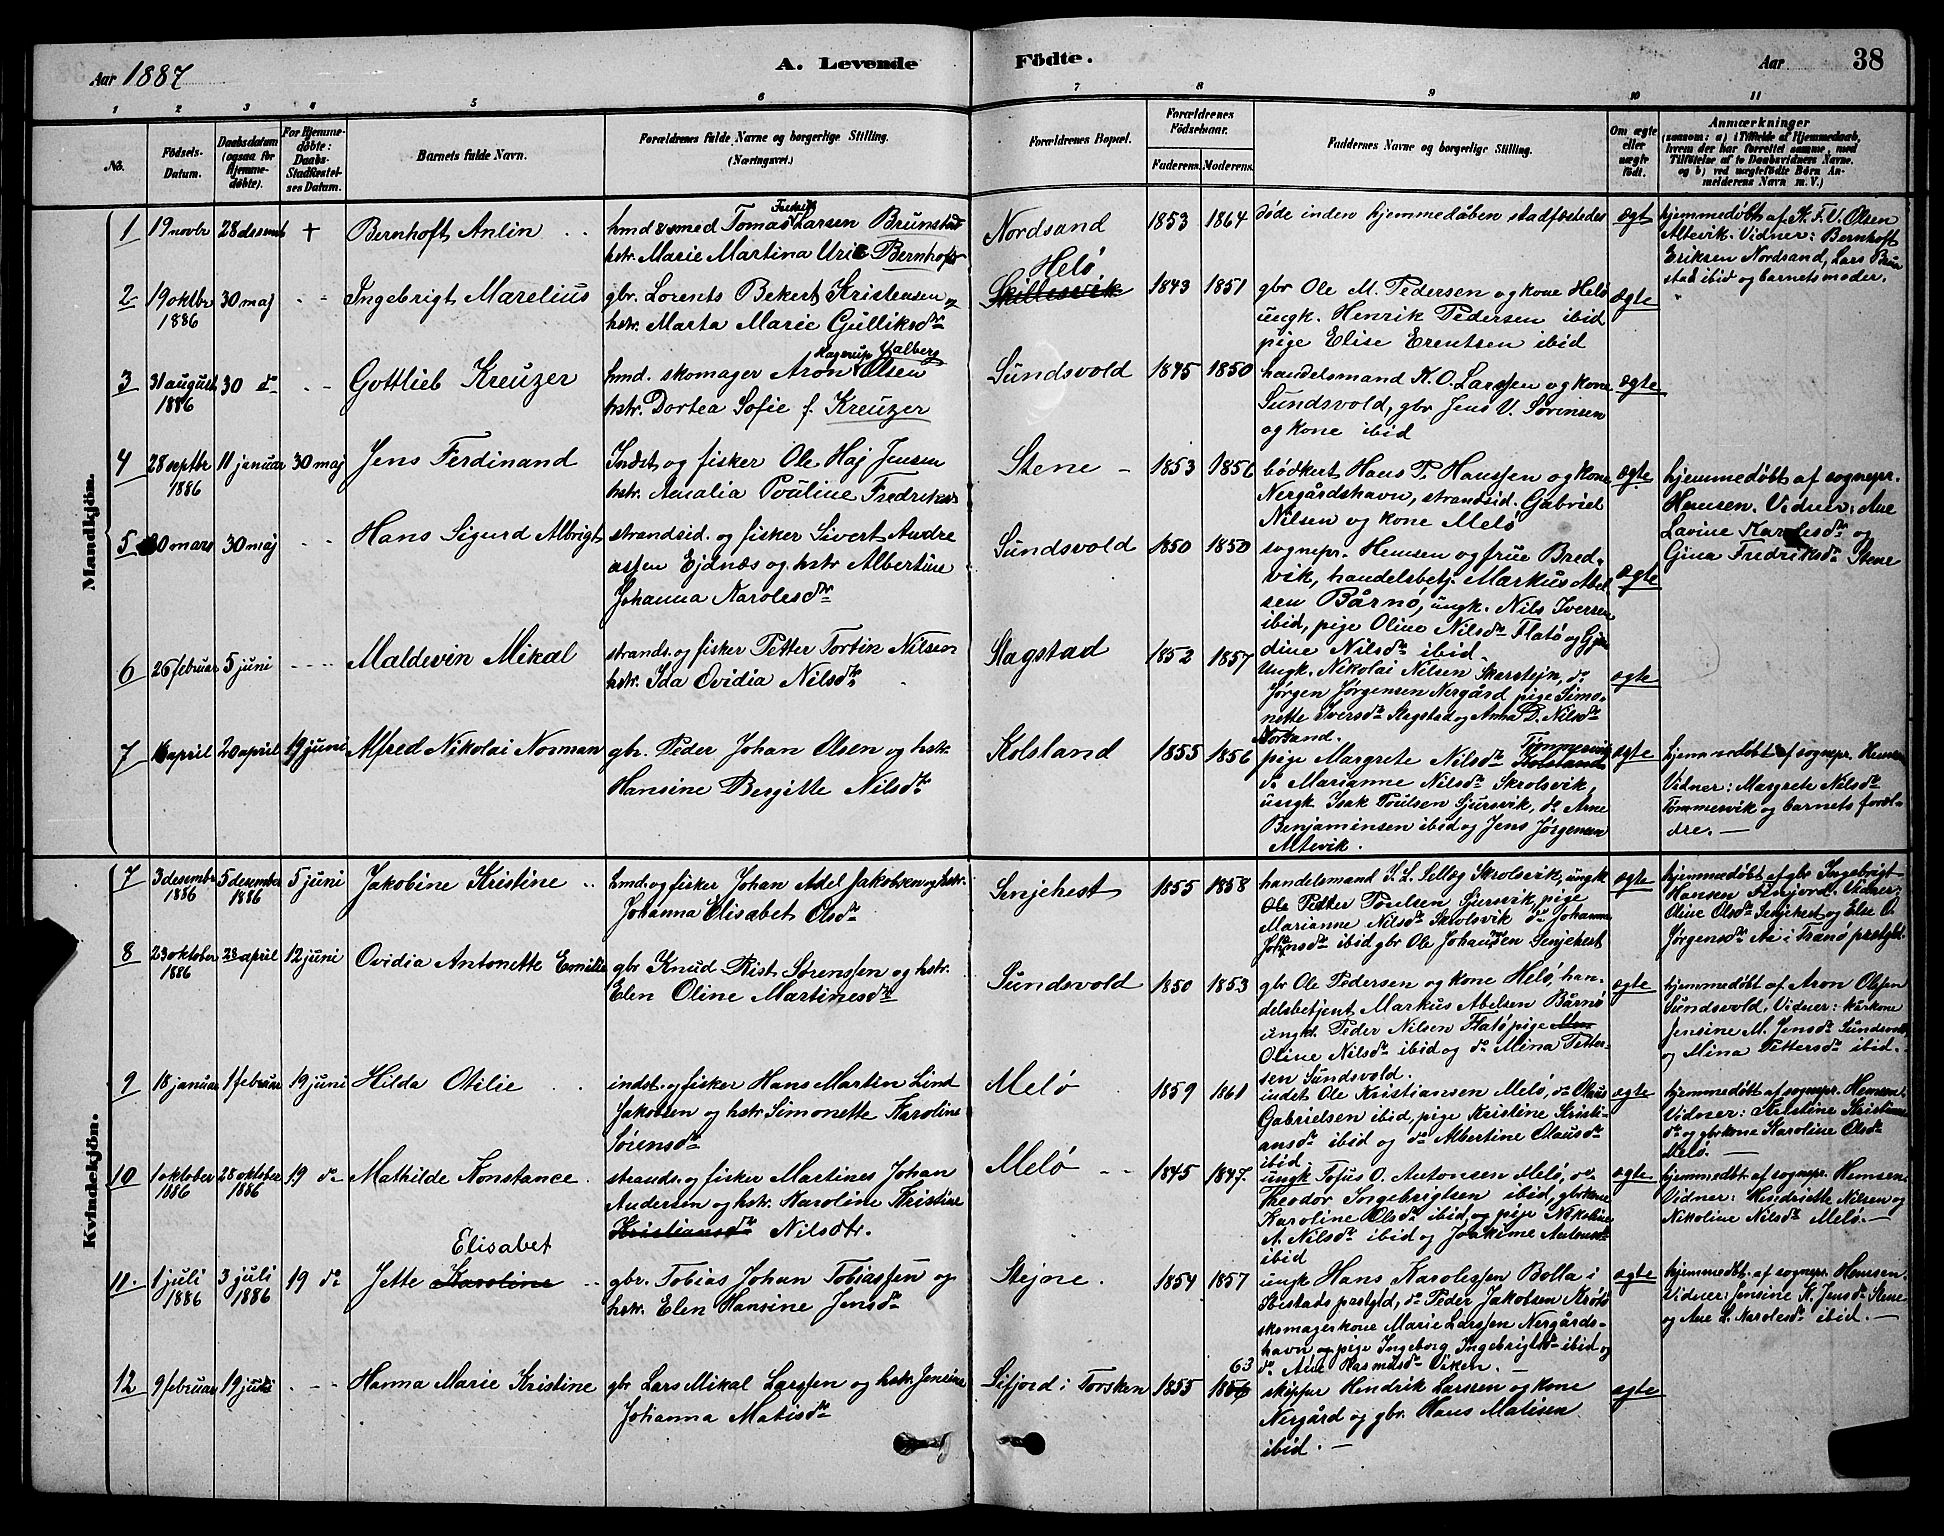 Aar 1887
A. Levende
Födte.
Aar
38
1 2 3 4 5 6 7 8 9 10 11
No.
Födsels-Datum.
Daabsdatum (ogsaa for Hjemme-döbte).
For Hjemme-döbte: Daabs-Stadfæstelses Datum.
Barnets fulde Navn.
Forældrenes fulde Navne og borgerlige Stilling. (Næringsvei.)
Forældrenes Bopæl.
Forældrenes Födselsaar.
Faderens. Moderens.
Faddernes Navne og borgerlige Stilling.
Om ægte eller uægte födt.
Anmærkninger
(saasom: a) i Tilfælde af Hjemmedaab, hvem der har forrettet samme, med Tilföielse af to Daabsvidners Navne, og b) ved uægtefödte Börn Anmelderens Navn m. V.)
Mandkjön.
1 19 novbr 28 desemb + Bernhoft Anlin
hmd & smed Tomas Fredrik Larsen Brunstad
hstr. Marie Martina Uric Bernhoft
Nordsand 1853 1864
døde inden hjemmedåben stadfæstedes
ægt
hjemmedøbt af K. F. V. Olsen
Altevik. Vidner: Bernhoft
Eriksen Nordsand, Lars Brun
stad ibid og barnets moder.
2 19 oktbr 1886 30 maj Ingebrigt Marelius
gbr. Lorents Bekert Kristensen og
hstr. Marta Marie Gulliksdr
Helö
Skillesvik 1843 1851
gbr Ole M. Pedersen og kone Helö
ungk. Henrik Pedersen ibid
pige Elise Erentsen ibid
ægte
3 31 august 1886 30 do Gottlieb Kreuzer
hmd. skomager Aron Hagerup Valberg Olsen
hstr. Dortea Sofie f. Kreuzer
Sundsvold 1845 1850
handelsmand K. O. Larssen og kone
Sundsvold, gbr Jens V. Sörensen
og kone ibid
ægte
4 28 septbr 1886 11 januar 30 maj Jens Ferdinand
Indst og fisker Ole Haj Jensen
hstr. Amalia Pouline Fredriksdr
Stene 1853 1856
bödkert Hans P. Hanssen og kone
Nergårdshavn, strandsid. Gabriel
Nilsen og kone Melö
ægte
hjemmedöbt af sognepr.
Hemsen. Vidner: Ane
Lavine Karolesdr og
Gina Fredriksdr Stene
5 30 mars 30 maj Hans Sigurd Albrigt
strandsid. og fisker Sivert Andre
assen Ejdnæs og hstr Albertine
Johanna Karolesdr
Sundsvold 1850 1850
sognepr. Hemsen og frue Bred-
vik, handelsbetj. Markus Abel
sen Bårnö, ungk. Nils Iversen
ibid, pige Oline Nilsdr Flatö og Gjer
dine Nilsdr ibid
ægte
6 26 februar 5 juni Maldevin Mikal
strands. og fisker Petter Tortin Nilsen
hstr. Ida Ovidia Nilsdr
Slagstad 1852 1857
Ungk. Nikolai Nilsen Skarstejn, do
Jörgen Jörgensen Nergård, pige Simo-
nette Iversdr Slagstad og Anna D. Nilsdr
Norsand.
ægte
7 6 april 20 april 19 juni Alfred Nikolai Norman
gbr. Peder Johan Olsen og hstr.
Hansine Bergitte Nilsdr
Kolsland 1855 1856
pige Margrete Nilsdr Tömmervig Kolsland
do Marianne Nilsdr Skrolsvik,
ungk Isak Poulsen Sjursvik, do Arne
Benjaminsen ibid og Jens Jörgensen
Altevik.
ægte
hjemmedöbt af sognepr. Hemsen
Vidner: Margrete Nilsdr
Tömmervik og barnets foræl-
dre.
Kvindekjön.
7 3 desembr 1886 5 desember 1886 5 juni Jakobine Kristine
hmd. og fisker Johan Adel Jakobsen og hstr.
Johanna Elisabet Olsdr
Senjehest 1855 1858
handelsmand S. L. Selleg Skrolsvik, ungk
Ole Petter Poulsen Sjursvik, pige
Marianne Nilsdr Skrolsvik do Johanna
Johansdr ibid gbr Ole Johansen Senjehest
ægte
hjemmedöbt af gbr Ingebrigt
Hansen Finjord. Vidner:
Oline Olsdr Senjehest og Else O.
Jörgensdr Aa i Tranö præstgld.
8 23 oktober 1886 23 april 12 juni Ovidia Antonette Emilie
gbr Knud Rist Sörenssen og hstr.
Elen Oline Martinesdr
Sundsvold 1850 1853
gbr Ole Pedersen og kone Helö, han-
delsbetjent Markus Abelsen Bårnö
ungk. Peder Nilsen Flatö pige
Oline Nilsdr ibid og do Mina Petter-
sen Sundsvold.
ægte
hjemmedöbt af Aron Olssen
Sundsvold. Vidner: kårkone
Jensine M. Jensdr Sundsvold,
og Mina Pettersdr ibid.
9 18 januar 1 februar 19 juni Hilda Otilie
indst. og fisker Hans Martin Lind
Jakobsen og hstr Simonette Karoline
Sörensdr
Melö 1859 1861
indst Ole Kristiansen Melö, do Olaus
Gabrielsen ibid, pige Kristine Kristi-
ansdr ibid og do Albertine Olausdr
ibid
ægte
hjemmedöbt af sognepr. Hemsen
Vidner: Kristine Kristians
dr og gbrkone Karoline Olsdr
Melö.
10 1 oktober 1886 28 oktober 1886 19 do Mathilde Konstance
strands. og fisker Martines Johan
Andersen og hstr. Karoline Kristine
Kristiansdr Nilsdtr.
Melö 1845 1847
ungk Tofus O. Antonsen Melö, do
Theodor Ingebrigtsen ibid, gbrkone
Karoline Olsdr ibid, og pige Nikoline
A. Nilsdr ibid og Joakime Antonsdr
ibid
ægte
hjemmedöbt af sognepr. Hemsen
Vidner: Hendriette Nilsen og
Nikoline Nilsdr Melö.
11. 1 juli 1886 3 juli 1886 19 do Jette Elisabet Karoline
gbr. Tobias Johan Tobiassen og
hstr. Elen Hansine Jensdr
Stejne. 1854 1857
ungk Hans Karolessen Bolla i
Ibestads præstgld, do Peder Jakobsen Krötö
skomagerkone Marie Larssen Nergårds-
havn og pige Ingeborg Ingebrigtsdr ibid og
do Ane Rasmusdr Viken.
ægte
hjemmedöbt af sognepr. Hemsen.
Vidner: Jensine K. Jensdr Stene
og Ane L. Karolesdr ibid.
12 9 februar 19 juni Hanna Marie Kristine
gbr Lars Mikal Larssen og hstr Jensine
Johanna Matisdr
Sifjord i Torsken 1855 1856 63
skipper Hendrik Larssen og kone
Nergård og gbr. Hans Matisen
ibid.
ægte